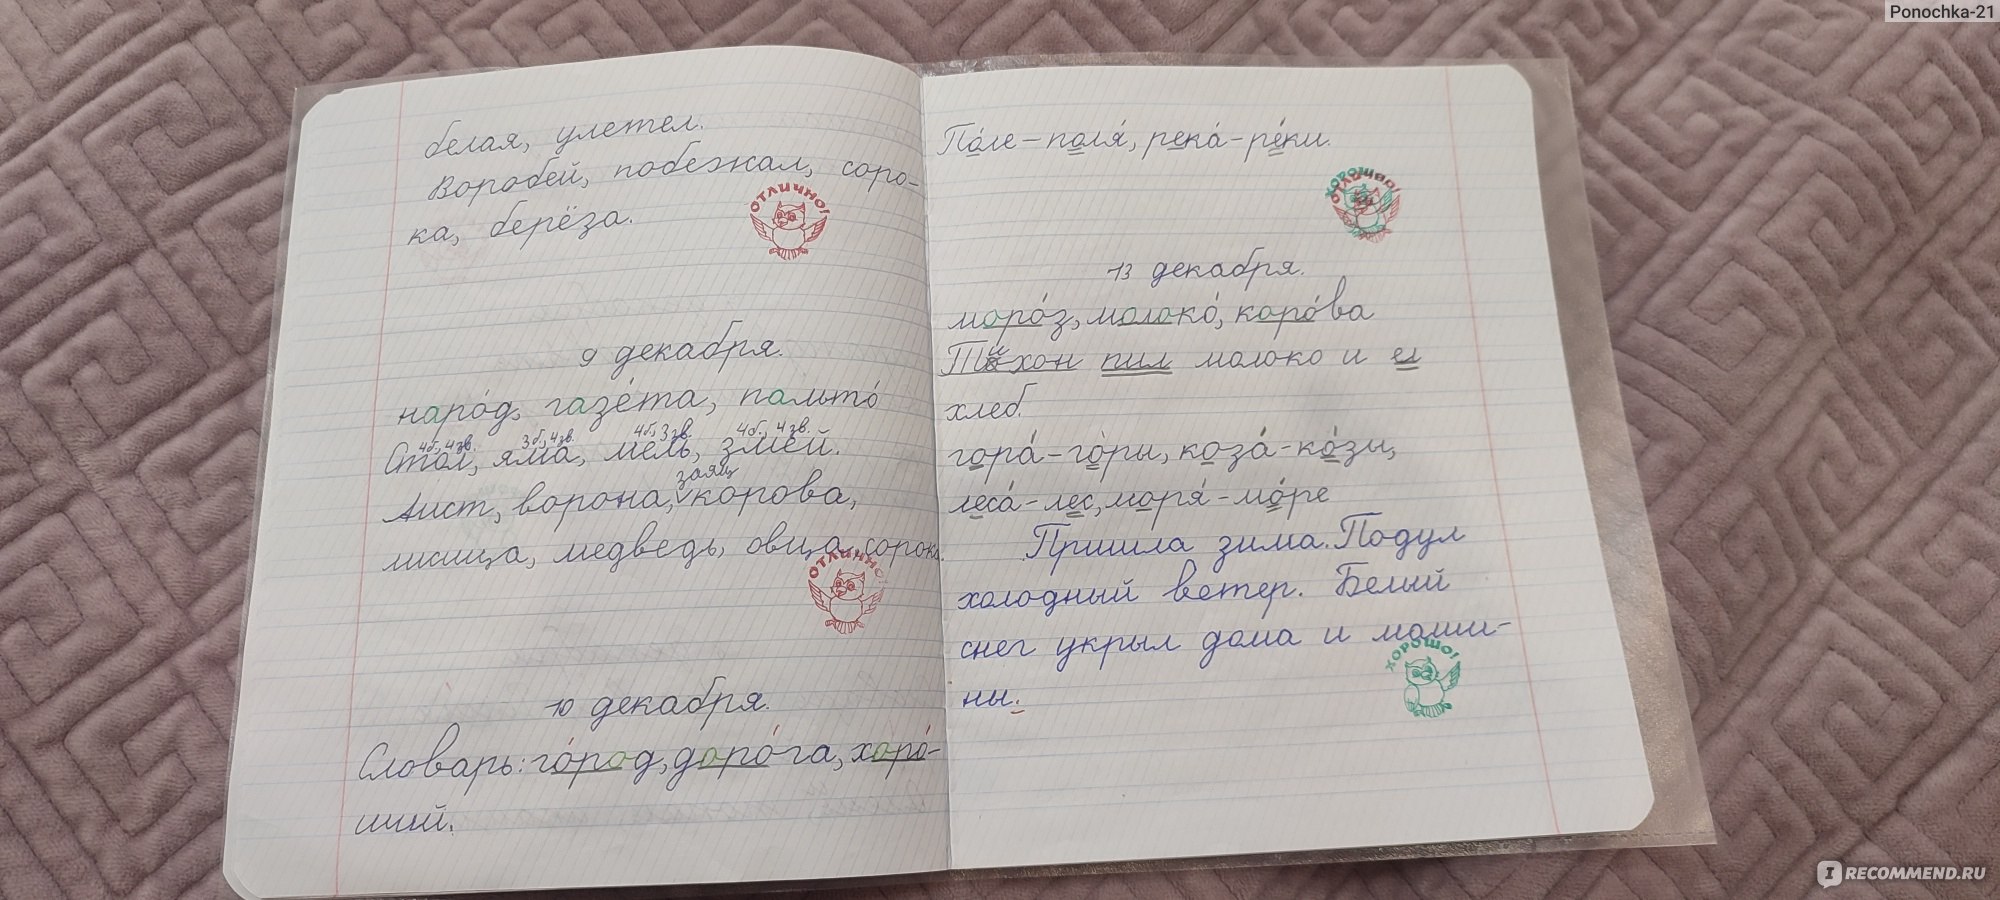 Ponochka-21
белая, улетел.
Воробей, побежал, соро-
ка, берёза.
ОТЛИЧНО!
9 декабря.
наро́д, газе́та, пальто́
4б., 4зв. 3б., 4зв. 4б., 3зв. 4б., 4зв.
Стол, яма, мель, змей.
заяц
Аист, ворона, корова,
лисица, медведь, овца, сорока.
ОТЛИЧНО!
10 декабря.
Словарь: го́род, доро́га, хоро́-
ший.
По́ле – поля́, река́ – ре́ки.
ХОРОШО!
ОТЛИЧНО!
13 декабря.
моро́з, молоко́, коро́ва
Тихон пил молоко и ел
хлеб.
гора́ – го́ры, коза́ – ко́зы,
леса́ – лес, моря́ – мо́ре
Пришла зима. Подул
холодный ветер. Белый
снег укрыл дома и маши-
ны.
ХОРОШО!
IRECOMMEND.RU